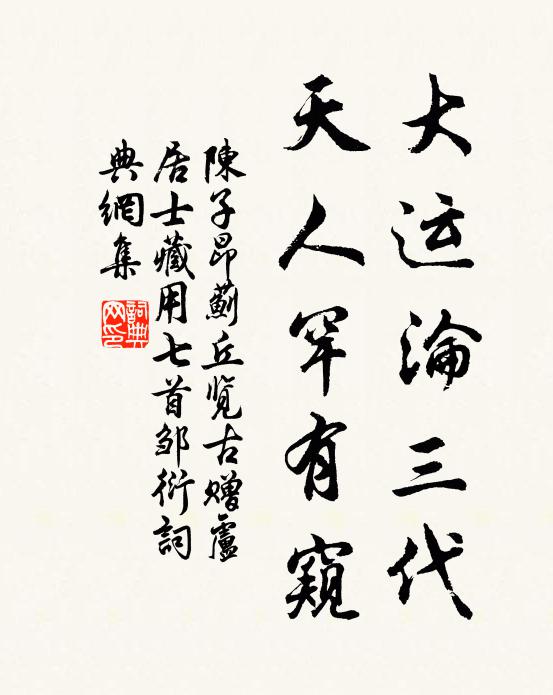 大运淪三代
天人罕有窺
陳子昂薊丘览古赠盧
居士藏用七首邹衍詞
典網集
詞典網印